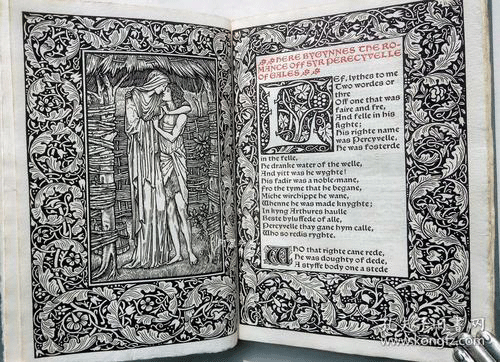 HERE BYGYNNES THE RO-
MANCE OFF SYR PERECYVELLE
OF GALES.
LEF, lythes to me
Two wordes or
thre
Off one that was
faire and fre,
And felle in his
fighte;
His righte name
was Percyvelle,
He was fosterde
in the felle,
He dranke water of the welle,
And yitt was he wyghte!
His fadir was a noble-mane,
Fro the tyme that he begane,
Miche wirchippe he wane,
Whenne he was made knyghte;
In kyng Arthures haulle
Beste byluffede of alle,
Percyvelle thay gane hym calle,
Who so redis ryghte.
WHO that righte cane rede,
He was doughty of dede,
A styffe body one a stede
孔夫子旧书网
kongfz.com